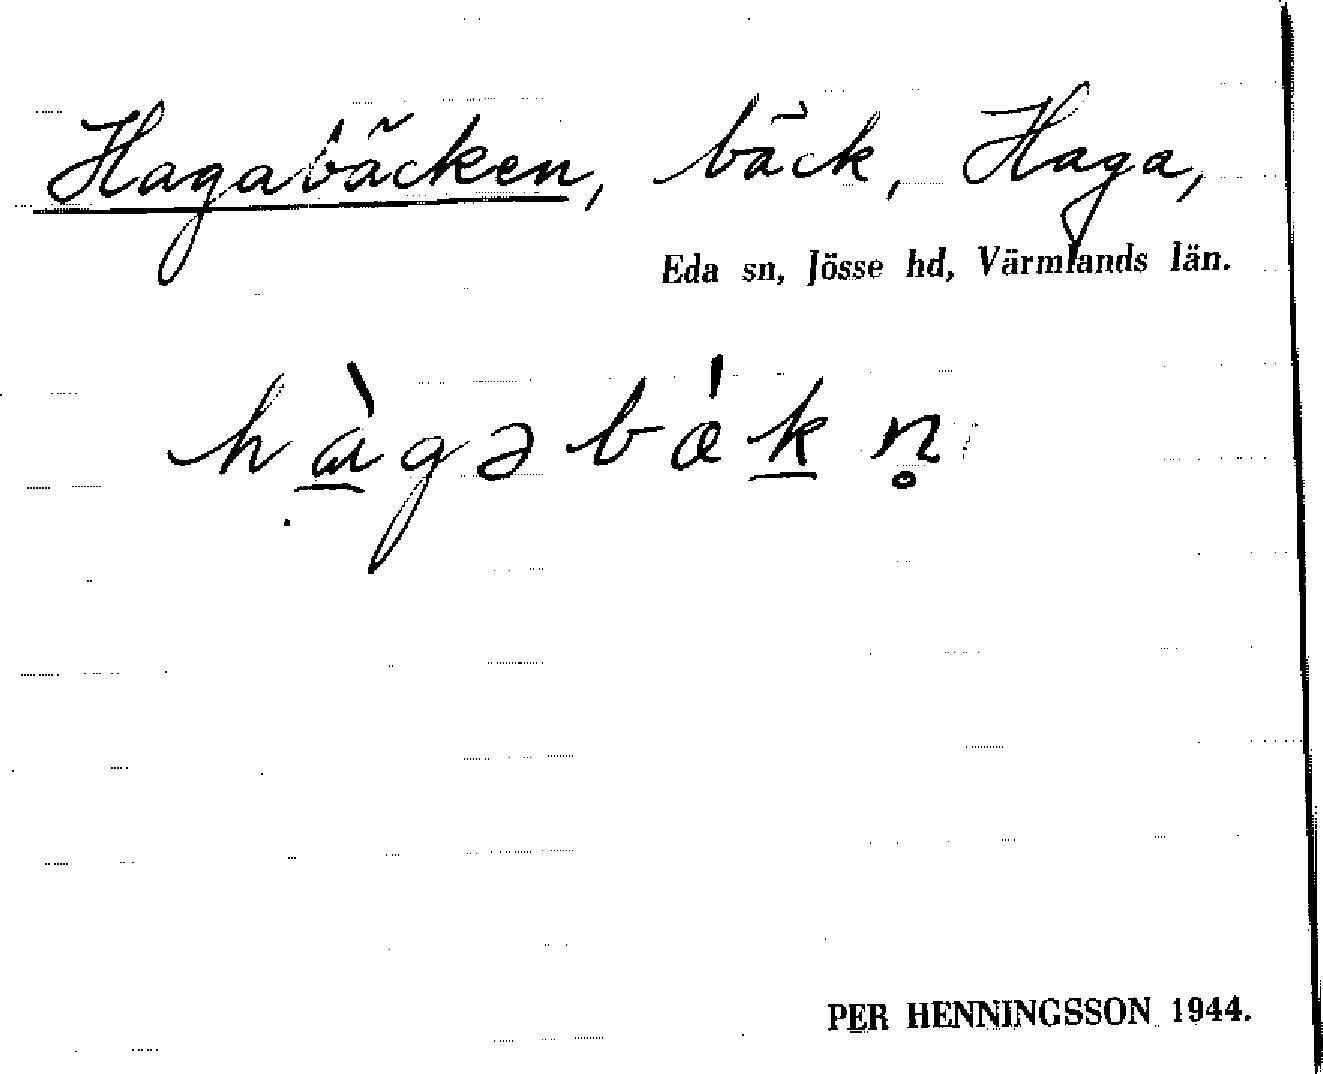 Hagabäcken, bäck, Haga,
Eda sn, Jösse hd, Värmlands län.
hàgəbákn̥
PER HENNINGSSON 1944.